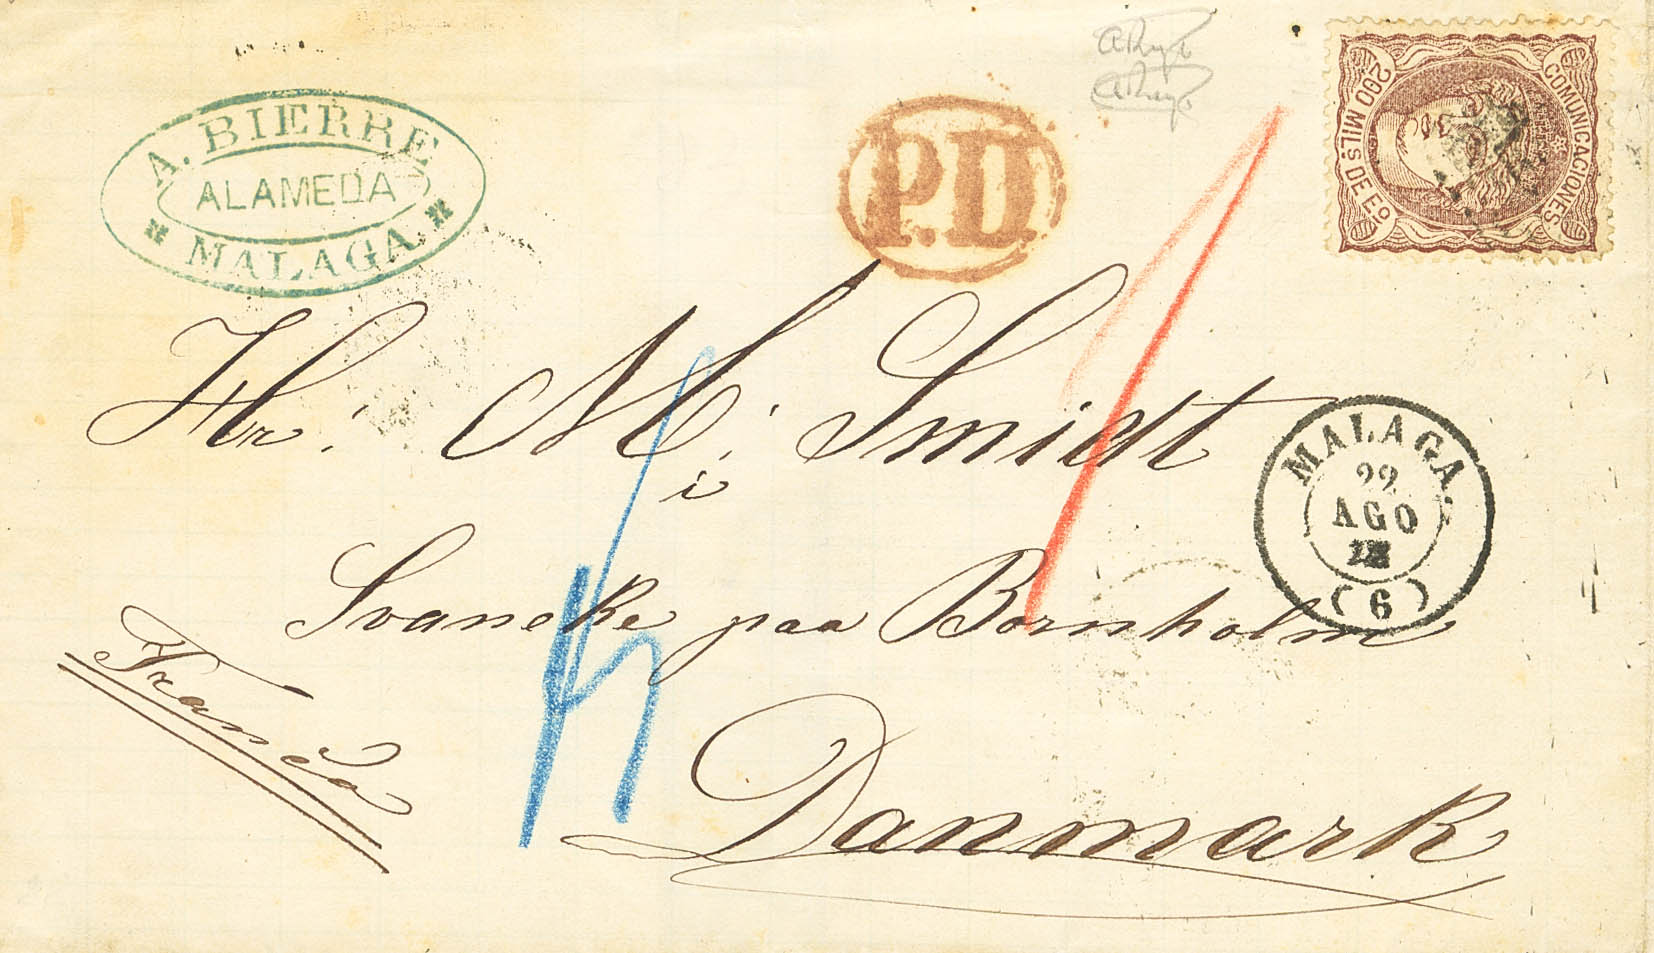 A. BIERRE
ALAMEDA
MALAGA.
P.D.
COMUNICACIONES
200 MILS DE EO
Hr: M. Smidt
i
Svaneke paa Bornholm
Danmark
Franco
MALAGA.
22
AGO
(6)